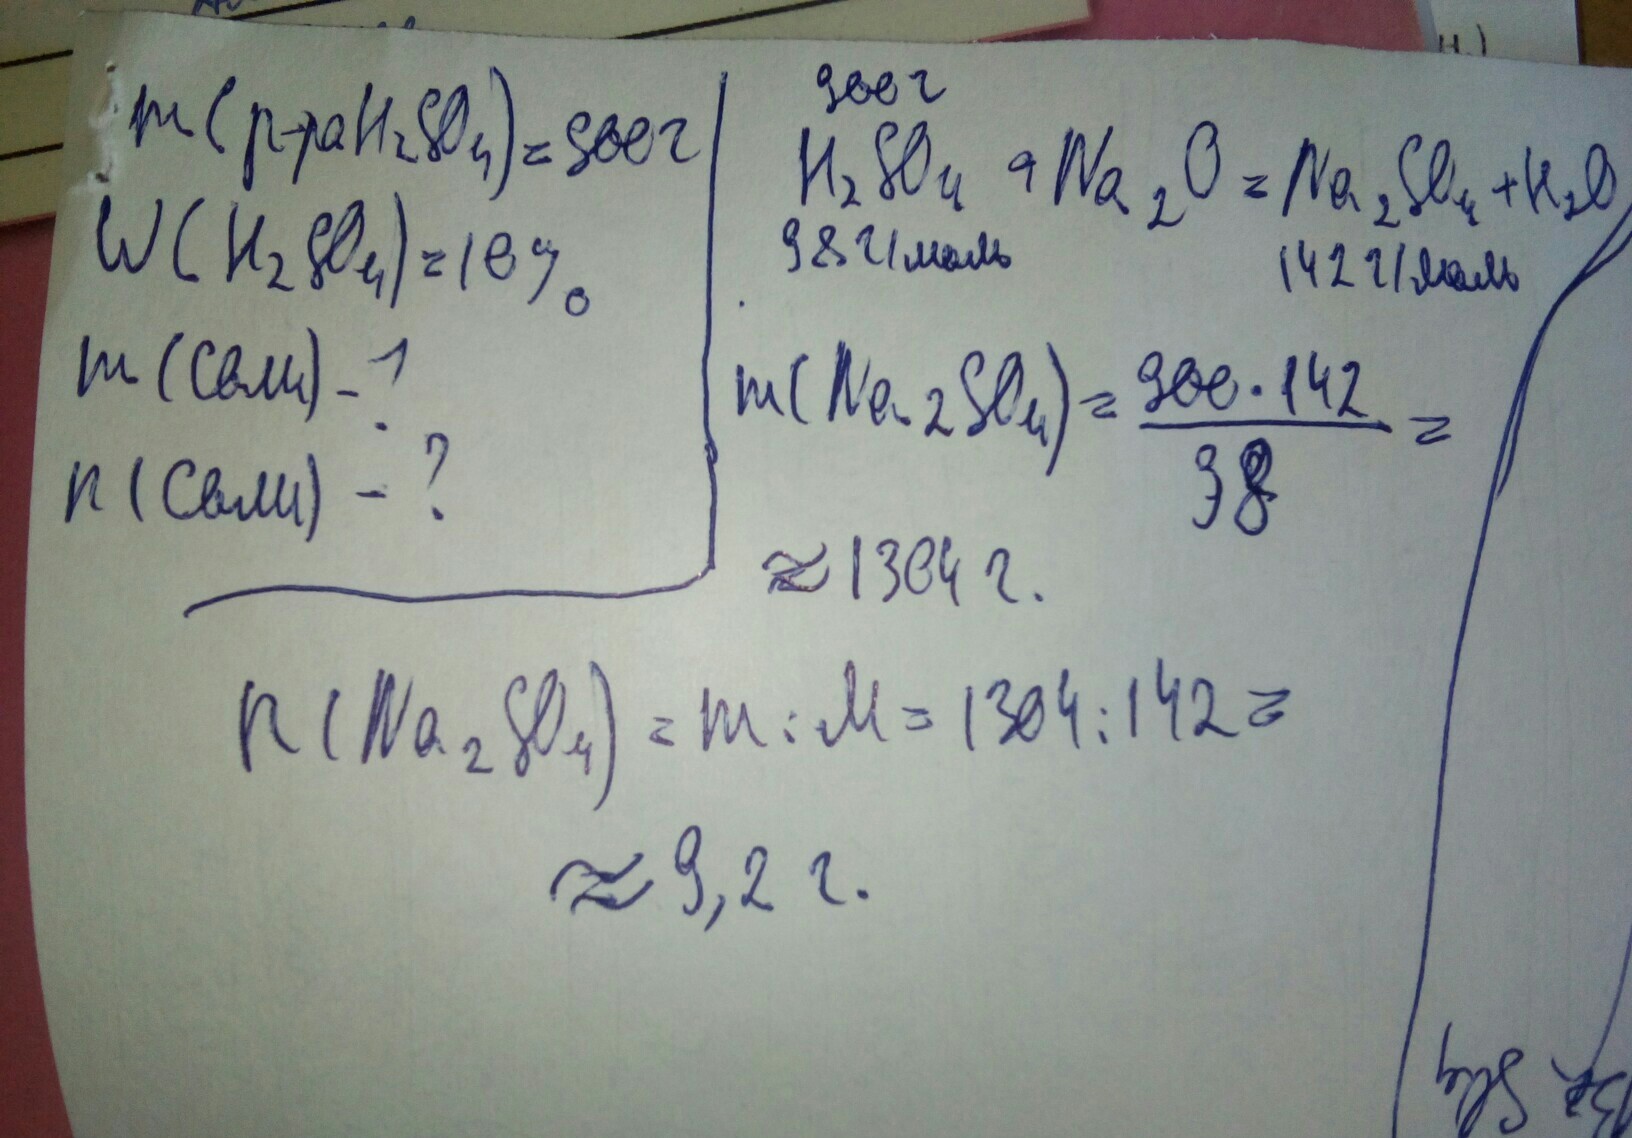 m(р-раH₂SO₄)=900г
W(H₂SO₄)=10%
m(соли)-?
n(соли)-?
900г
H₂SO₄ + Na₂O = Na₂SO₄ + H₂O
98г/моль 142г/моль
m(Na₂SO₄) = 900·142 / 98 =
≈1304г.
n(Na₂SO₄) = m:M = 1304:142 =
≈9,2 г.